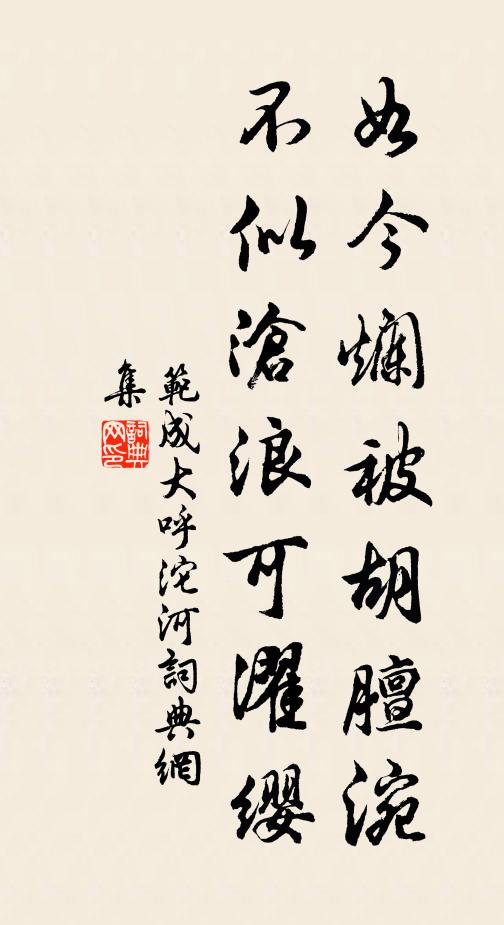 如今爛被胡膻涴
不似滄浪可濯纓
範成大呼沱河詞典網
集
詞典网印